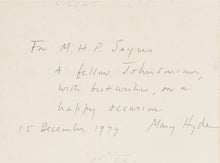 For M.H.P. Sayers
A fellow Johnsonian,
with best wishes, on a
happy occasion
15 December 1979 Mary Hyde